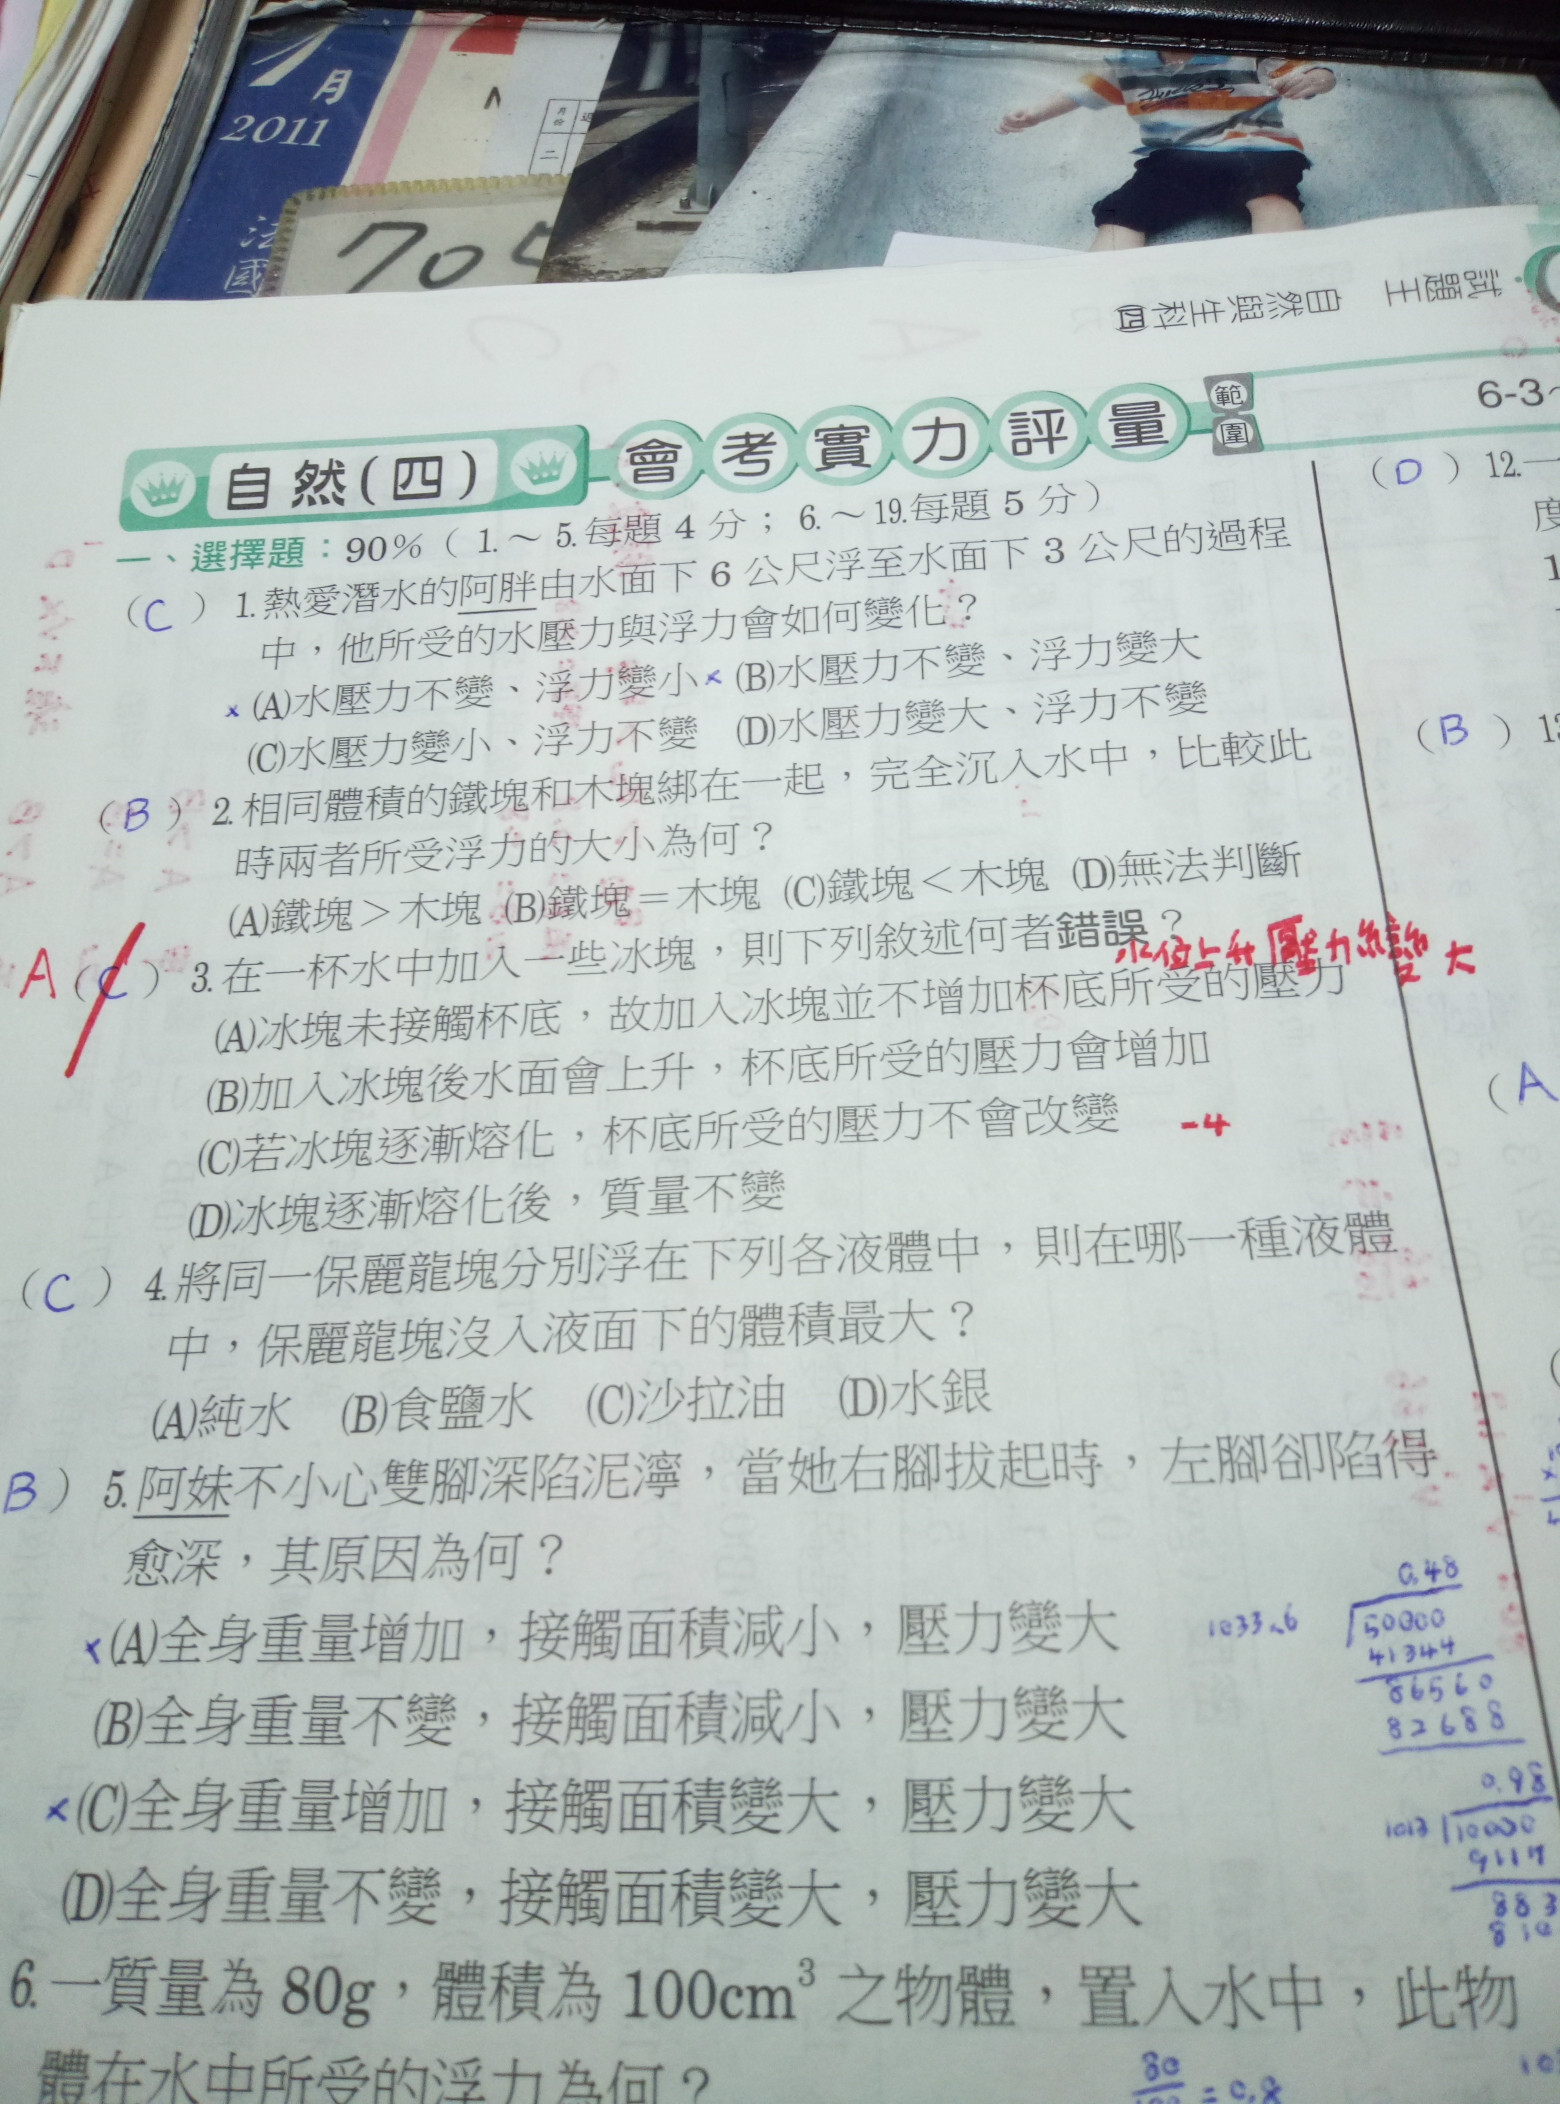 1月
2011
法
國
705
試題王 自然與生科(四)
自然(四) 會考實力評量 範圍 6-3~
一、選擇題：90%（1.～5.每題4分；6.～19.每題5分）
（C）1.熱愛潛水的阿胖由水面下6公尺浮至水面下3公尺的過程
中，他所受的水壓力與浮力會如何變化？
×(A)水壓力不變、浮力變小 ×(B)水壓力不變、浮力變大
(C)水壓力變小、浮力不變 (D)水壓力變大、浮力不變
（B）2.相同體積的鐵塊和木塊綁在一起，完全沉入水中，比較此
時兩者所受浮力的大小為何？
(A)鐵塊＞木塊 (B)鐵塊＝木塊 (C)鐵塊＜木塊 (D)無法判斷
A（C）3.在一杯水中加入一些冰塊，則下列敘述何者錯誤？
水位上升 壓力變大
(A)冰塊未接觸杯底，故加入冰塊並不增加杯底所受的壓力
(B)加入冰塊後水面會上升，杯底所受的壓力會增加
(C)若冰塊逐漸熔化，杯底所受的壓力不會改變 -4
(D)冰塊逐漸熔化後，質量不變
（C）4.將同一保麗龍塊分別浮在下列各液體中，則在哪一種液體
中，保麗龍塊沒入液面下的體積最大？
(A)純水 (B)食鹽水 (C)沙拉油 (D)水銀
B）5.阿妹不小心雙腳深陷泥濘，當她右腳拔起時，左腳卻陷得
愈深，其原因為何？
×(A)全身重量增加，接觸面積減小，壓力變大
(B)全身重量不變，接觸面積減小，壓力變大
×(C)全身重量增加，接觸面積變大，壓力變大
(D)全身重量不變，接觸面積變大，壓力變大
6.一質量為80g，體積為100cm³之物體，置入水中，此物
體在水中所受的浮力為何？
80
= 0.8
0.48
1033.6 50000
41344
86560
82688
0.98
1013 10000
9117
883
（D）12.一
度
（B）13
（A